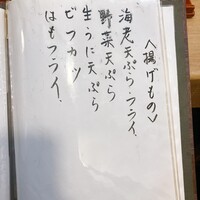 〈揚げもの〉
海老天ぷら・フライ
野菜天ぷら
生うに天ぷら
ビフカツ
はもフライ.